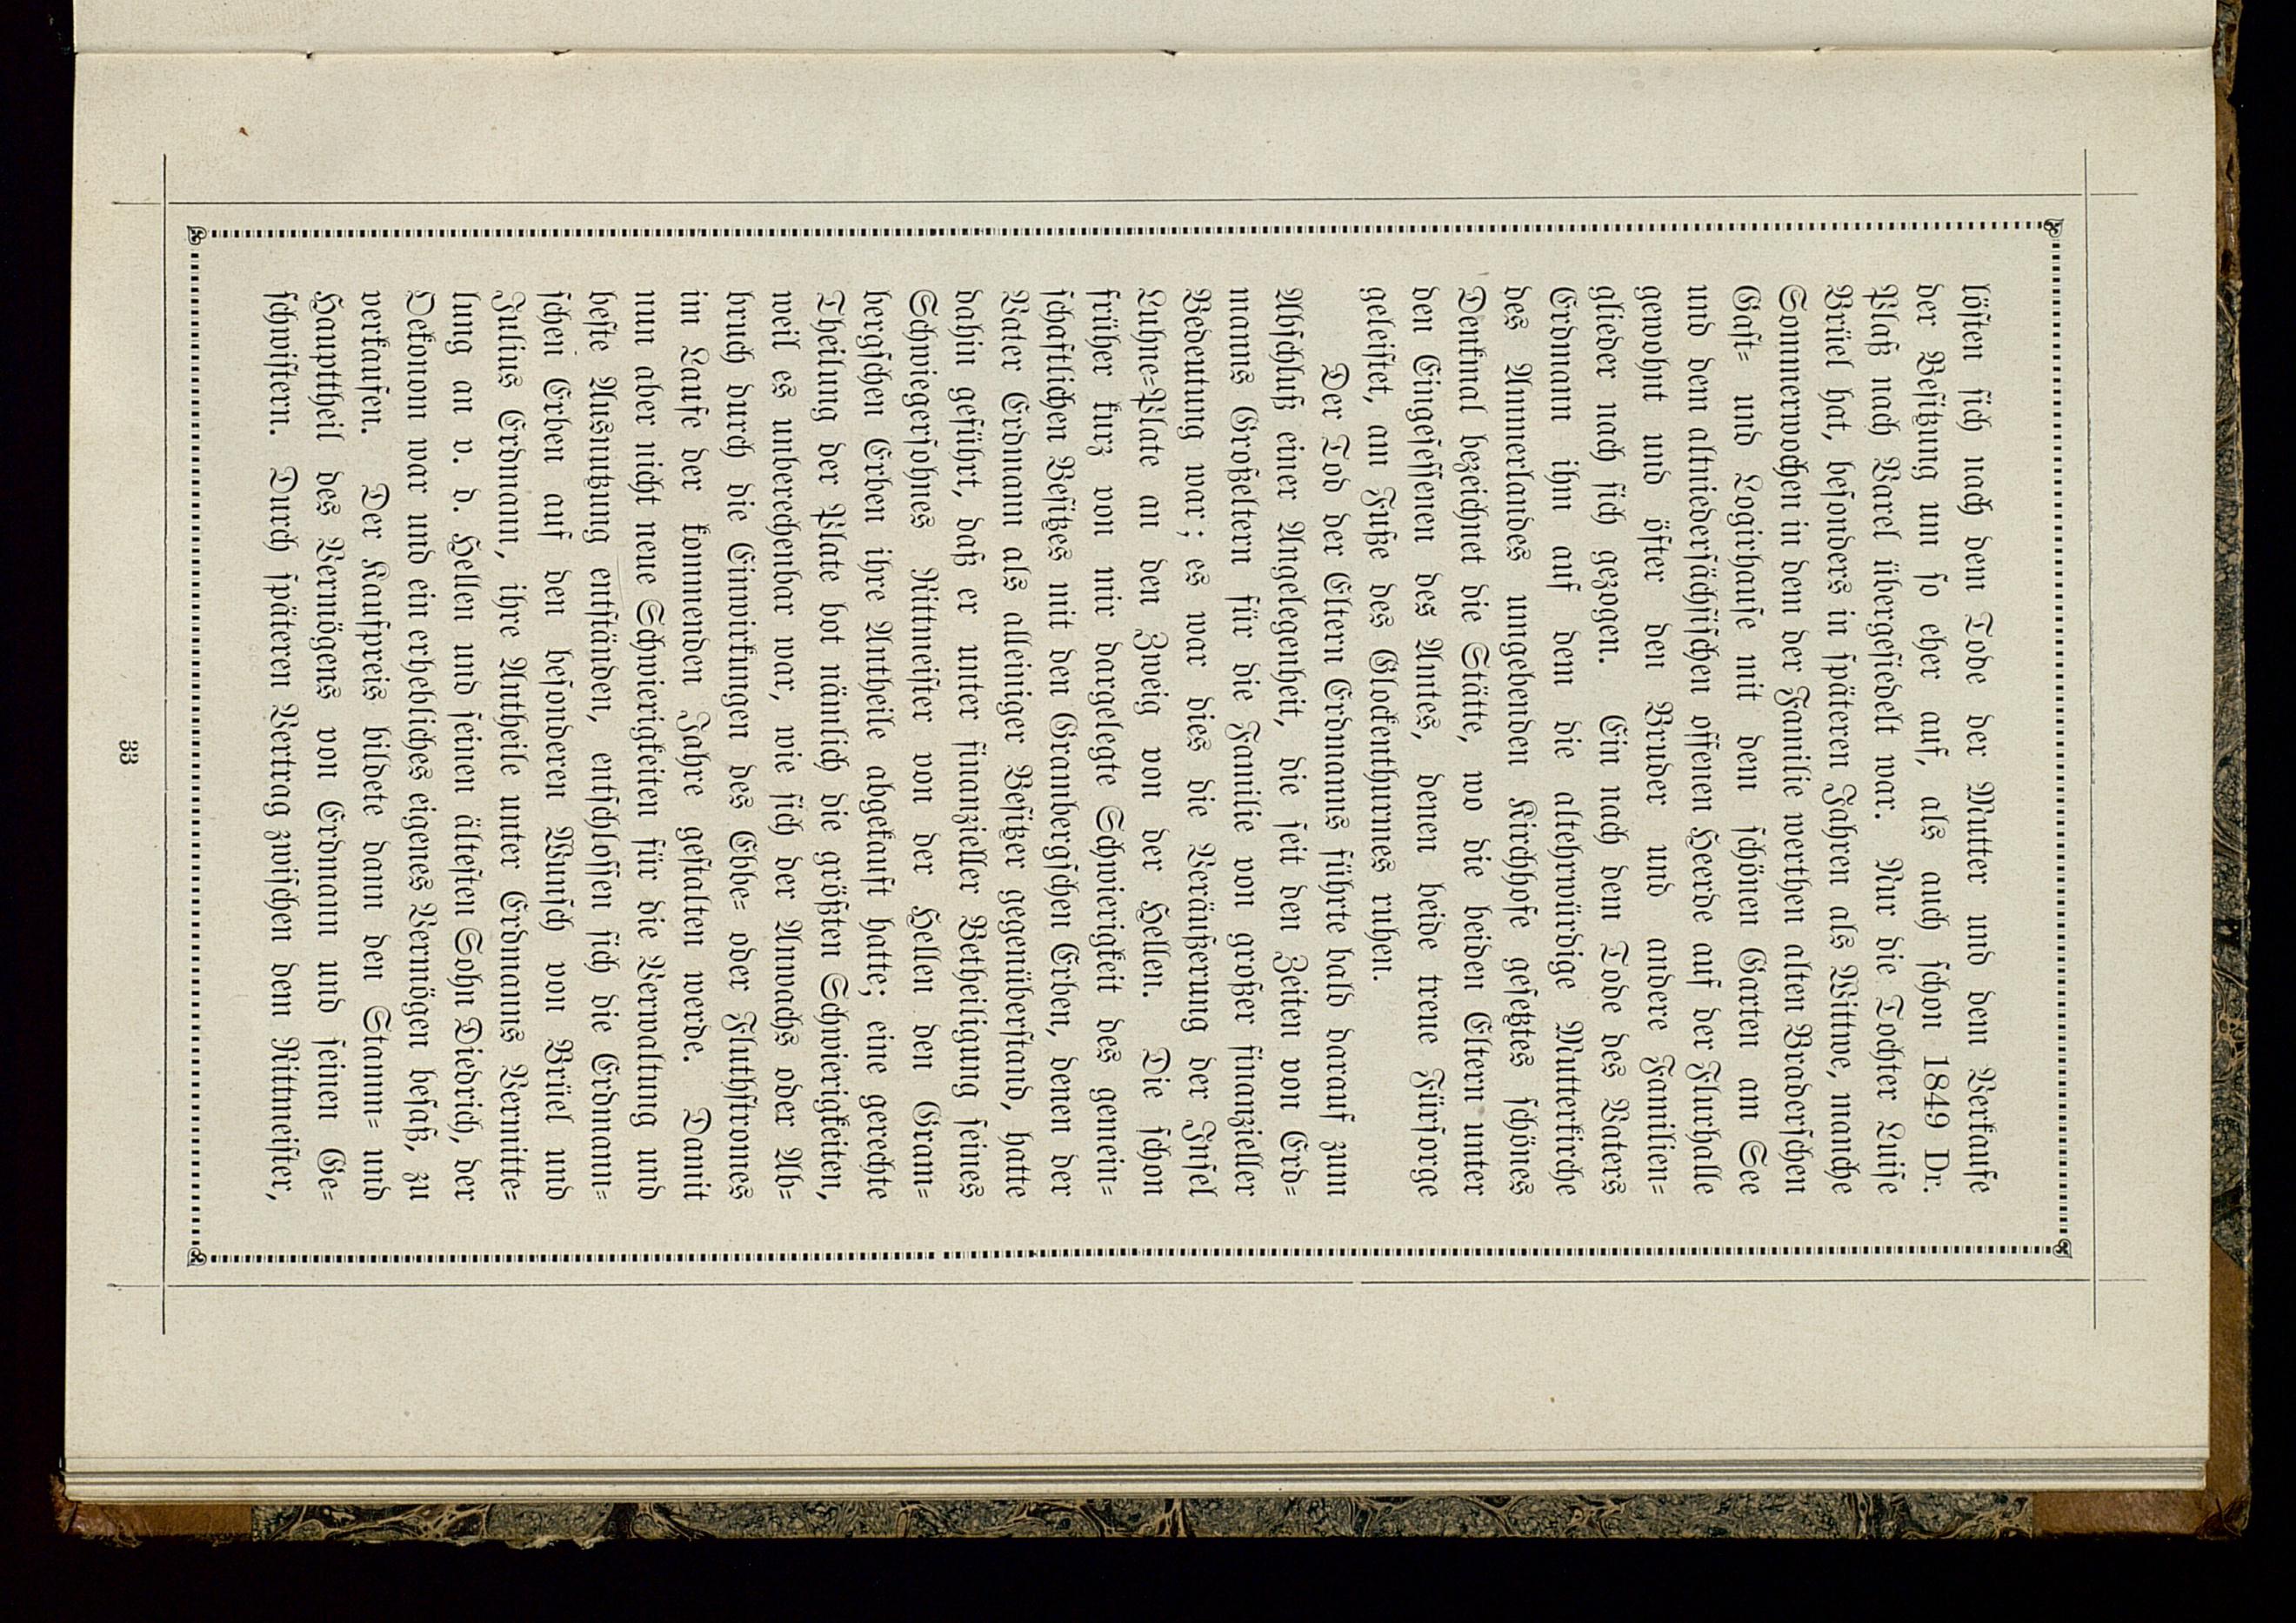 lösten sich nach dem Tode der Mutter und dem Verkaufe
der Besitzung um so eher auf, als auch schon 1849 Dr.
Plaß nach Varel übergesiedelt war. Nur die Tochter Luise
Brüel hat, besonders in späteren Jahren als Wittwe, manche
Sommerwochen in dem der Familie werthen alten Braderschen
Gast- und Logirhause mit dem schönen Garten am See
und dem altniedersächsischen offenen Heerde auf der Flurhalle
gewohnt und öfter den Bruder und andere Familien-
glieder nach sich gezogen. Ein nach dem Tode des Vaters
Erdmann ihm auf dem die altehrwürdige Mutterkirche
des Ammerlandes umgebenden Kirchhofe gesetztes schönes
Denkmal bezeichnet die Stätte, wo die beiden Eltern unter
den Eingesessenen des Amtes, denen beide treue Fürsorge
geleistet, am Fuße des Glockenthurmes ruhen.
Der Tod der Eltern Erdmanns führte bald darauf zum
Abschluß einer Angelegenheit, die seit den Zeiten von Erd-
manns Großeltern für die Familie von großer finanzieller
Bedeutung war; es war dies die Veräußerung der Insel
Luhne-Plate an den Zweig von der Hellen. Die schon
früher kurz von mir dargelegte Schwierigkeit des gemein-
schaftlichen Besitzes mit den Grambergschen Erben, denen der
Vater Erdmann als alleiniger Besitzer gegenüberstand, hatte
dahin geführt, daß er unter finanzieller Betheiligung seines
Schwiegersohnes Rittmeister von der Hellen den Gram-
bergschen Erben ihre Antheile abgekauft hatte; eine gerechte
Theilung der Plate bot nämlich die größten Schwierigkeiten,
weil es unberechenbar war, wie sich der Anwachs oder Ab-
bruch durch die Einwirkungen des Ebbe- oder Fluthstromes
im Laufe der kommenden Jahre gestalten werde. Damit
nun aber nicht neue Schwierigkeiten für die Verwaltung und
beste Ausnutzung entständen, entschlossen sich die Erdmann-
schen Erben auf den besonderen Wunsch von Brüel und
Julius Erdmann, ihre Antheile unter Erdmanns Vermitte-
lung an v. d. Hellen und seinen ältesten Sohn Diedrich, der
Oekonom war und ein erhebliches eigenes Vermögen besaß, zu
verkaufen. Der Kaufpreis bildete dann den Stamm- und
Haupttheil des Vermögens von Erdmann und seinen Ge-
schwistern. Durch späteren Vertrag zwischen dem Rittmeister,
33